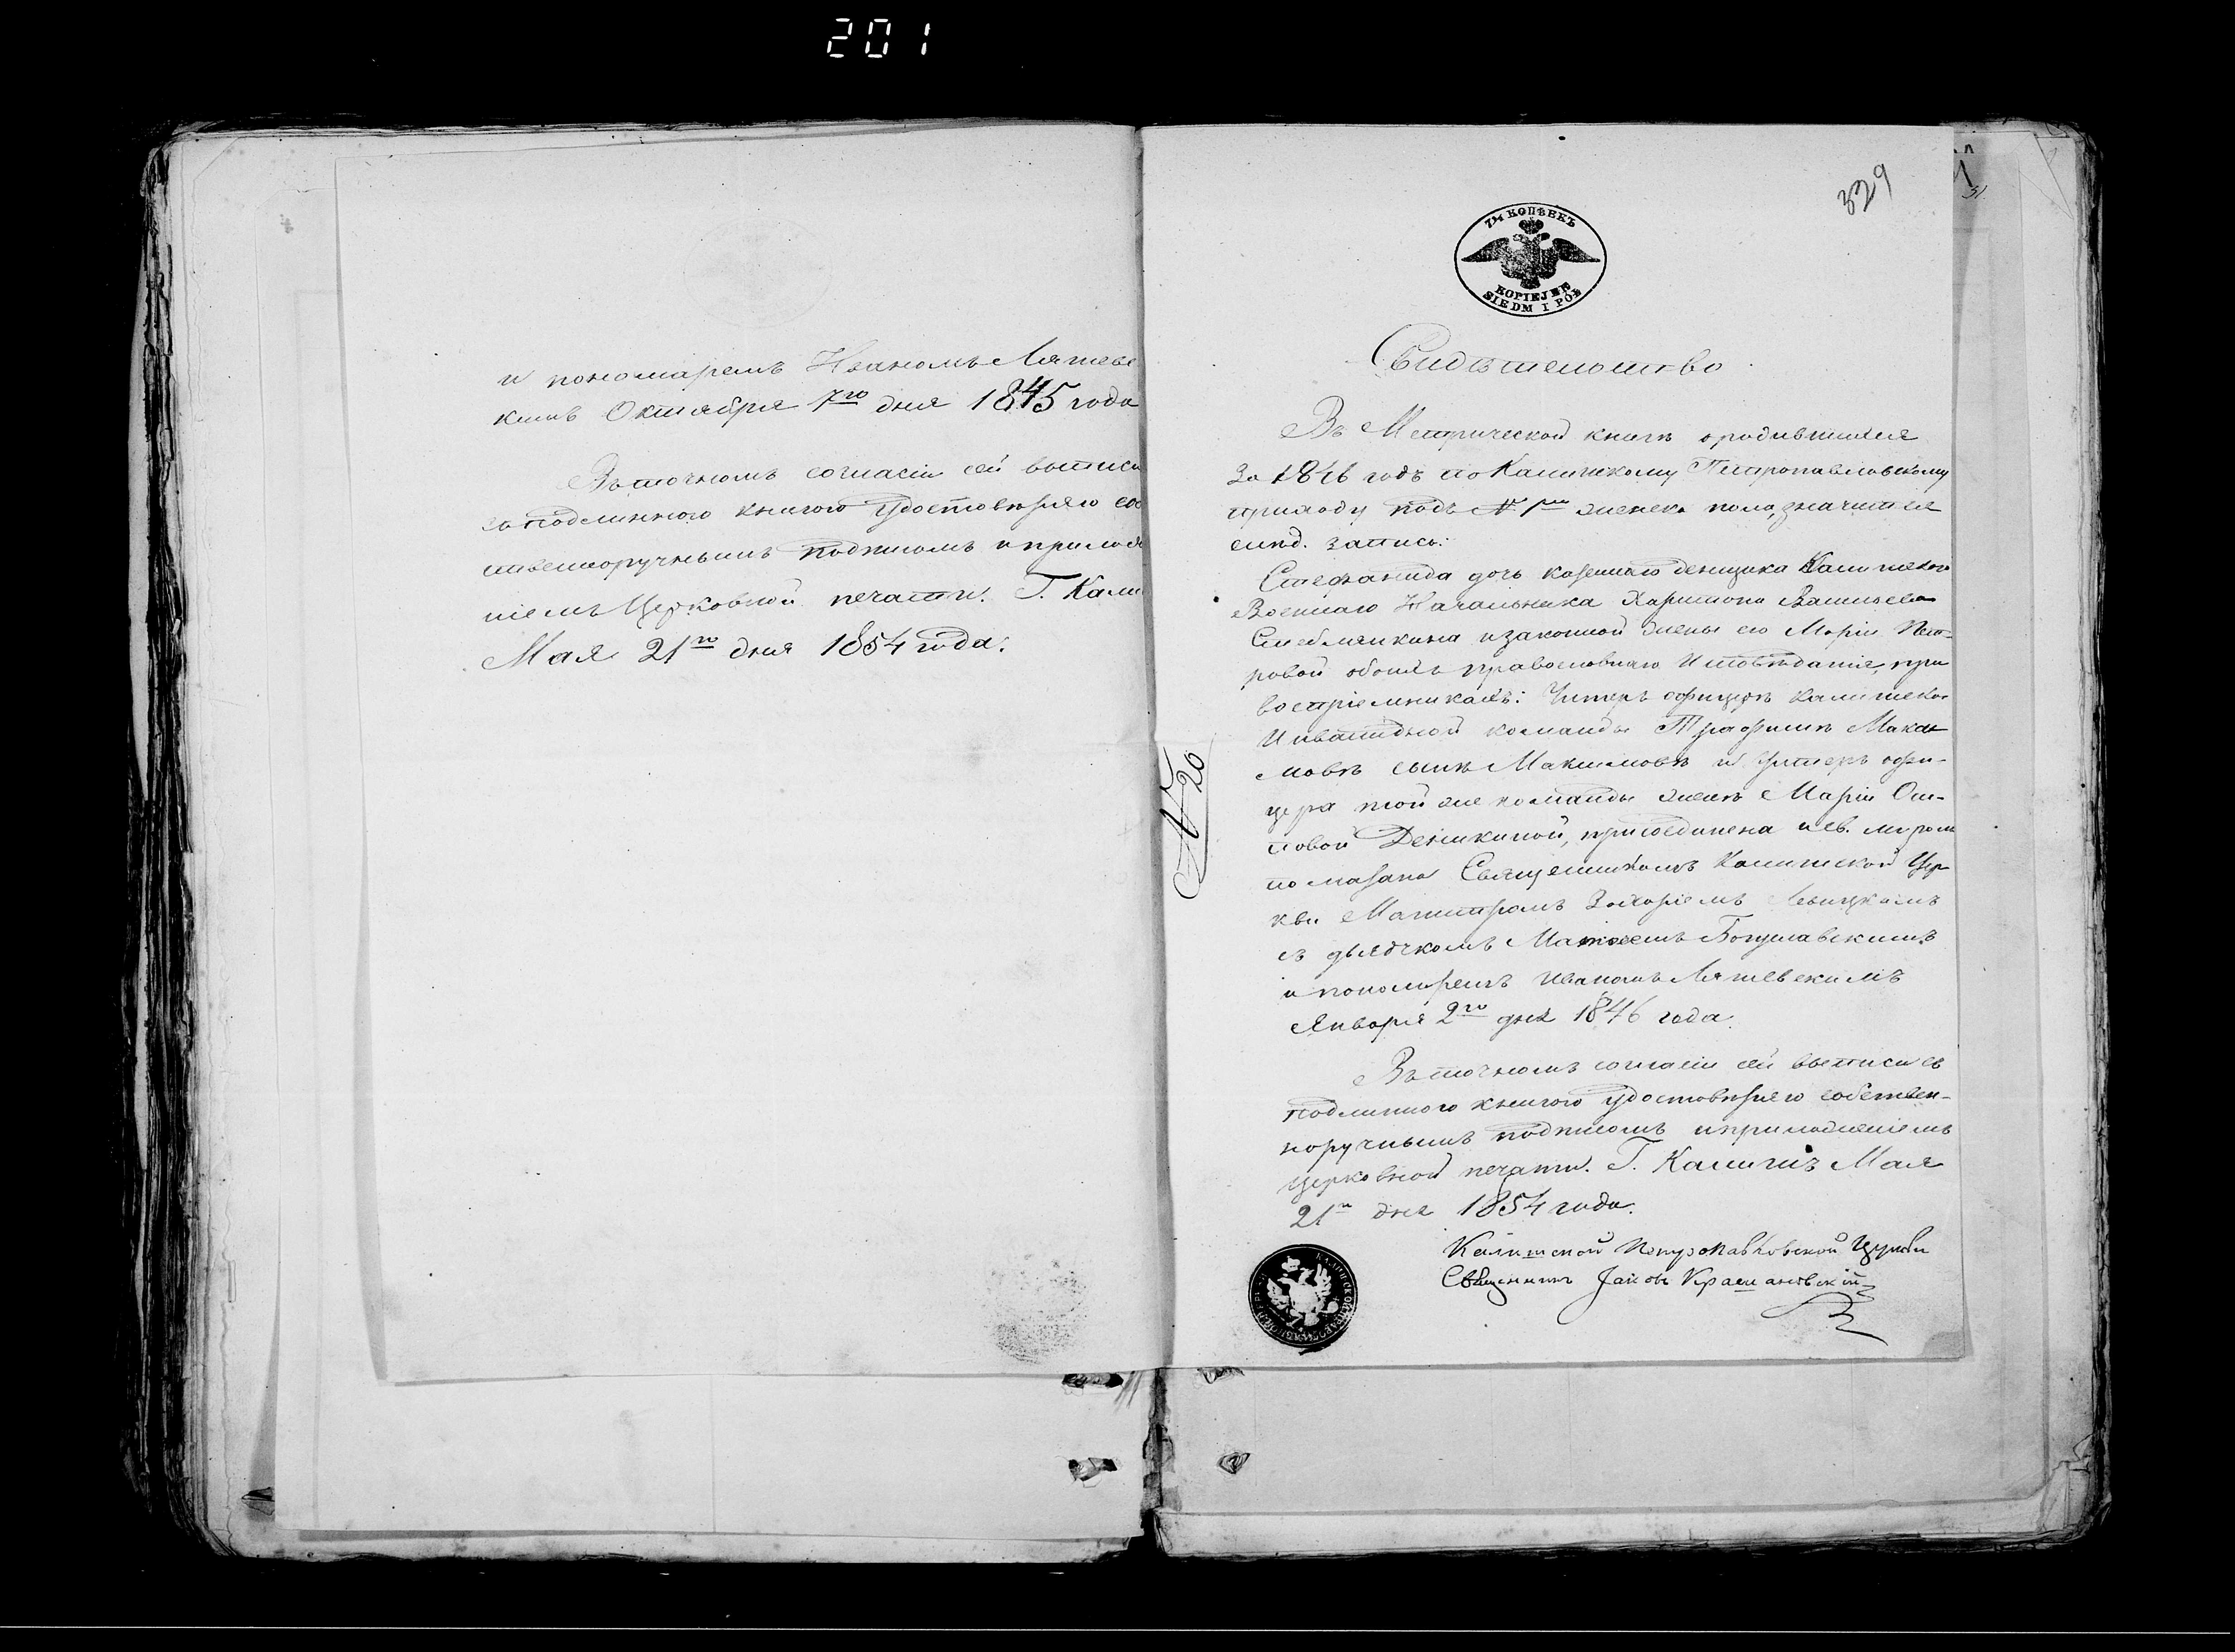 201
и пономаремъ Иваномъ Ляшевс
кимъ Октября 7го дня 1845 года
Въ точномъ согласіи сей выписи
съ подлинною книгою удостовѣряю соб
ственноручнымъ подписомъ и приложе
ніемъ Церковной печати. Г. Кали
Мая 21го дня 1854 года.
329
7½ КОПѢЕКЪ
KOPIEJEK
SIEDM I PÓŁ
Свидѣтельство
Въ Метрической книгѣ о родившихся
за 1846 годъ по Калишскому Петропавловскому
приходу подъ № 1мъ женска пола, значится
слѣд. запись:
Стефанида дочь казеннаго денщика Калишскаго
Военнаго Начальника Харитона Васильева
и законной жены его Маріи Пет-
ровой обоихъ православнаго Исповѣданія, при
воспріемникахъ: Унтеръ офицерѣ Калишской
Инвалидной команды Трофимѣ Макси
мовѣ сынѣ Максимовѣ и Унтеръ офи-
цера той же команды женѣ Маріи Оси-
повой Деникиной, присоединена и св. миромъ
помазана Священникомъ Калишской Цер
кви Магистромъ Захаріемъ Левицкимъ
съ дьячкомъ Матвеемъ Богуславскимъ
и пономаремъ Иваномъ Ляшевскимъ
Января 2го дня 1846 года.
№ 20
Въ точномъ согласіи сей выписи съ
подлинною книгою удостовѣряю собствен-
норучнымъ подписомъ и приложеніемъ
церковной печати. Г. Калишъ Мая
21го дня 1854 года.
Калишской Петропавловской Церкви
Священникъ Іаковъ